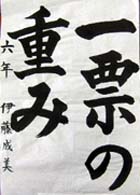 一票の
重み
六年 伊藤成美